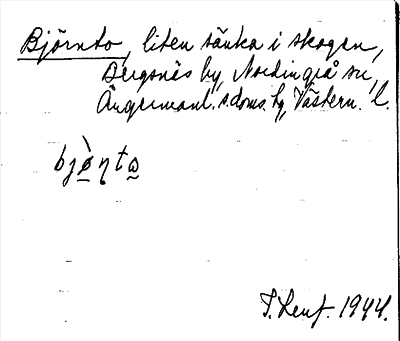 Björnto, liten sänka i skogen,
Bergsnäs by, Nordingrå sn,
Ångermanl. s. doms. hg, Västern. l.
bjòṇta
T. Lenf. 1944.